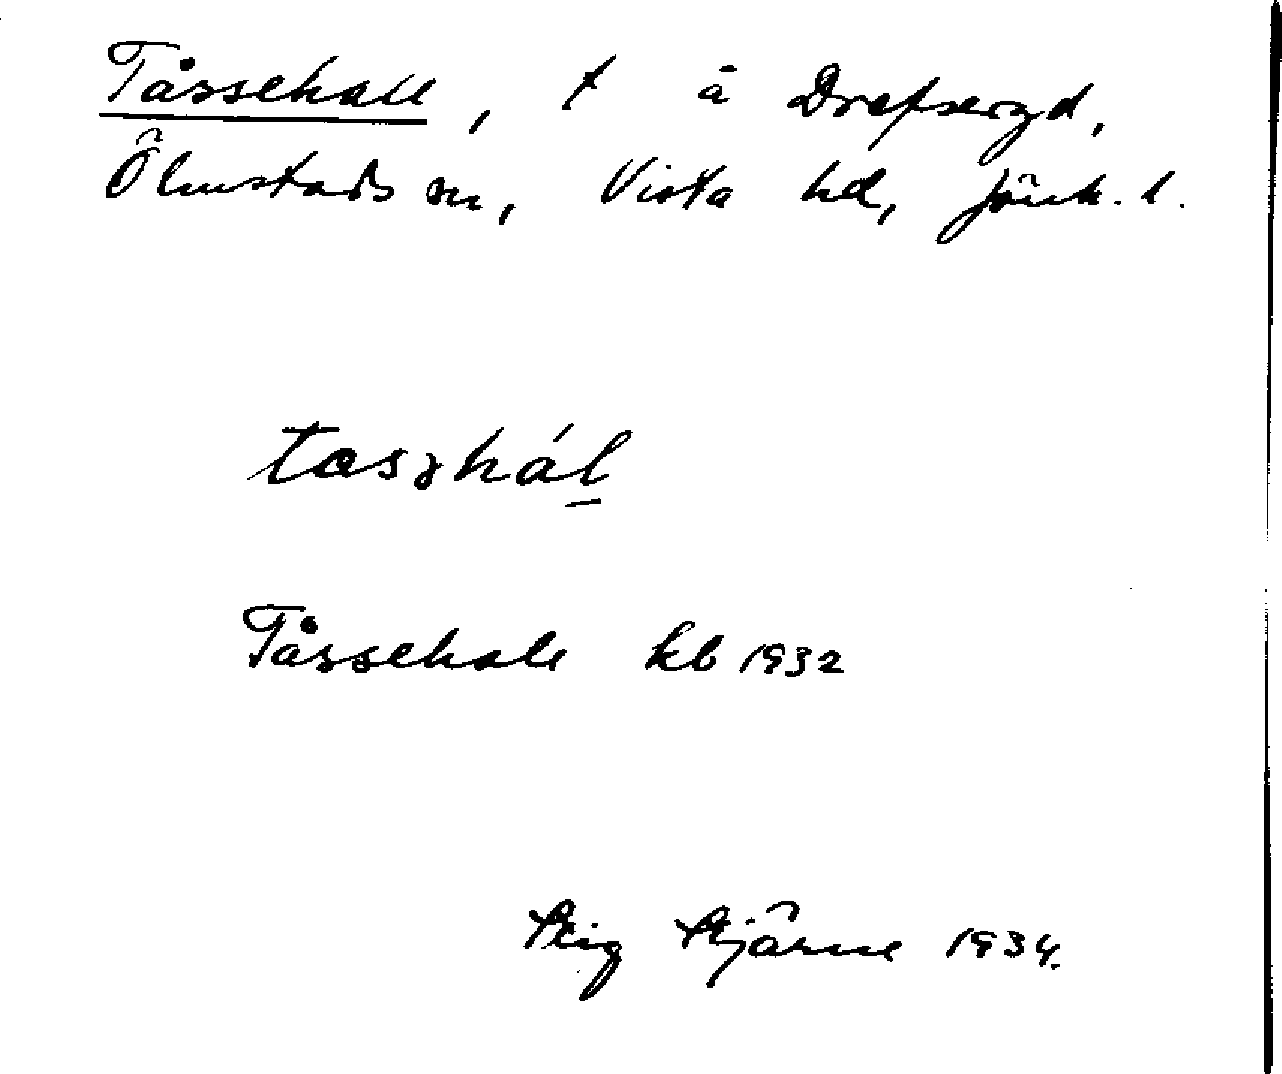 Tåssehall, t å Drefseryd,
Ölmstads sn, Vista hd, Jönk. l.
tasəhál
Tåssehall kb 1932
Stig Stjärne 1934.